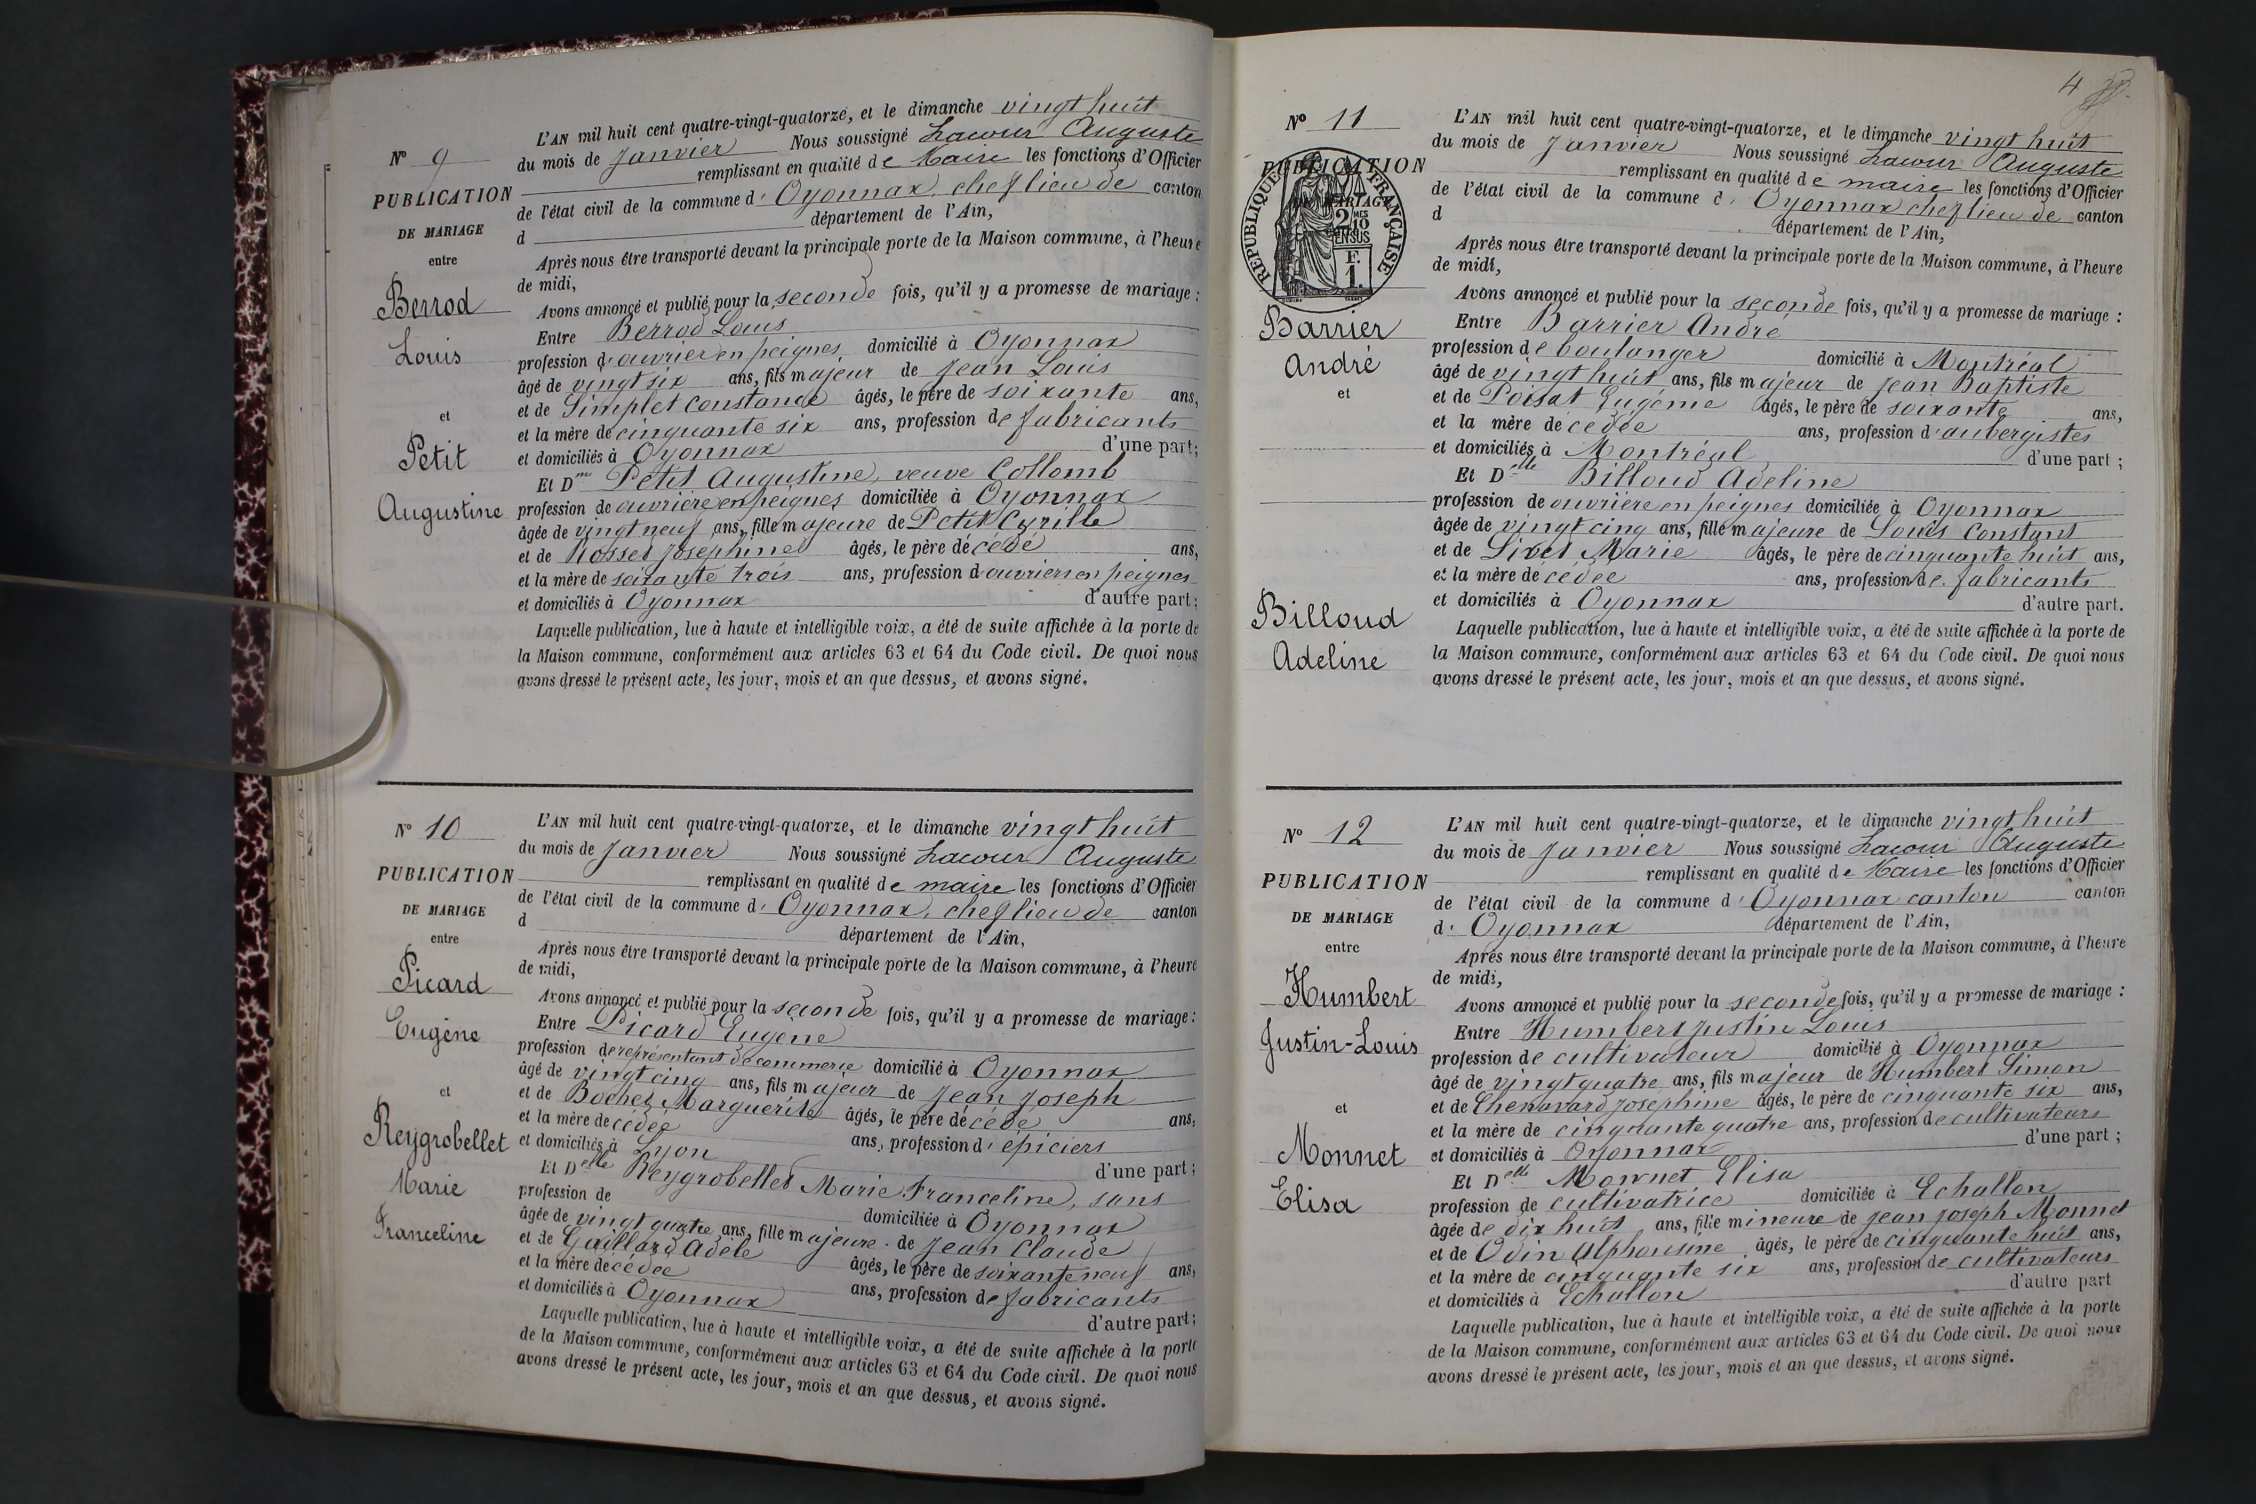 N° 9
PUBLICATION
DE MARIAGE
entre
Berrod
Louis
et
Petit
Augustine
L'AN mil huit cent quatre-vingt-quatorze, et le dimanche vingt huit
du mois de Janvier Nous soussigné Lacour Auguste
remplissant en qualité de Maire les fonctions d'Officier
de l'état civil de la commune d' Oyonnax, chef lieu de canton
d département de l'Ain,
Après nous être transporté devant la principale porte de la Maison commune, à l'heure
de midi,
Avons annoncé et publié pour la seconde fois, qu'il y a promesse de mariage :
Entre Berrod Louis
profession d'ouvrier en peignes domicilié à Oyonnax
âgé de vingt six ans, fils majeur de Jean Louis
et de Simplet Constance âgés, le père de soixante ans,
et la mère de cinquante six ans, profession de fabricants
et domiciliés à Oyonnax d'une part;
Et Dme Petit Augustine, veuve Collomb
profession de ouvrière en peignes domiciliée à Oyonnax
âgée de vingt neuf ans, fille majeure de Petit Cyrille
et de Rosset Josephine âgés, le père décédé ans,
et la mère de soixante trois ans, profession d'ouvriers en peignes
et domiciliés à Oyonnax d'autre part;
Laquelle publication, lue à haute et intelligible voix, a été de suite affichée à la porte de
la Maison commune, conformément aux articles 63 et 64 du Code civil. De quoi nous
avons dressé le présent acte, les jour, mois et an que dessus, et avons signé.
N° 10
PUBLICATION
DE MARIAGE
entre
Picard
Eugène
et
Reygrobellet
Marie
Franceline
L'AN mil huit cent quatre-vingt-quatorze, et le dimanche vingt huit
du mois de Janvier Nous soussigné Lacour Auguste
remplissant en qualité de maire les fonctions d'Officier
de l'état civil de la commune d' Oyonnax, chef lieu de canton
d département de l'Ain,
Après nous être transporté devant la principale porte de la Maison commune, à l'heure
de midi,
Avons annoncé et publié pour la seconde fois, qu'il y a promesse de mariage :
Entre Picard Eugène
profession de représentant de commerce domicilié à Oyonnax
âgé de vingt cinq ans, fils majeur de Jean Joseph
et de Bochet Marguerite âgés, le père décédé ans,
et la mère décédée ans, profession d'épiciers
et domiciliés à Lyon d'une part;
Et Delle Reygrobellet Marie Franceline, sans
profession de domiciliée à Oyonnax
âgée de vingt quatre ans, fille majeure de Jean Claude
et de Gaillard Adèle âgés, le père de soixante neuf ans,
et la mère décédée ans, profession de fabricants
et domiciliés à Oyonnax d'autre part;
Laquelle publication, lue à haute et intelligible voix, a été de suite affichée à la porte
de la Maison commune, conformément aux articles 63 et 64 du Code civil. De quoi nous
avons dressé le présent acte, les jour, mois et an que dessus, et avons signé.
4
N° 11
PUBLICATION
DE MARIAGE
RÉPUBLIQUE FRANÇAISE
2 MES 10
EN SUS
F.
1.
Barrier
André
et
Billoud
Adeline
L'AN mil huit cent quatre-vingt-quatorze, et le dimanche vingt huit
du mois de Janvier Nous soussigné Lacour Auguste
remplissant en qualité de maire les fonctions d'Officier
de l'état civil de la commune d' Oyonnax chef lieu de canton
d département de l'Ain,
Après nous être transporté devant la principale porte de la Maison commune, à l'heure
de midi,
Avons annoncé et publié pour la seconde fois, qu'il y a promesse de mariage :
Entre Barrier André
profession de boulanger domicilié à Montréal
âgé de vingt huit ans, fils majeur de Jean Baptiste
et de Poisat Eugénie âgés, le père de soixante ans,
et la mère décédée ans, profession d'aubergistes
et domiciliés à Montréal d'une part ;
Et Delle Billoud Adeline
profession de ouvrière en peignes domiciliée à Oyonnax
âgée de vingt cinq ans, fille majeure de Louis Constant
et de Livet Marie âgés, le père de cinquante huit ans,
et la mère décédée ans, profession de fabricants
et domiciliés à Oyonnax d'autre part.
Laquelle publication, lue à haute et intelligible voix, a été de suite affichée à la porte de
la Maison commune, conformément aux articles 63 et 64 du Code civil. De quoi nous
avons dressé le présent acte, les jour, mois et an que dessus, et avons signé.
N° 12
PUBLICATION
DE MARIAGE
entre
Humbert
Justin-Louis
et
Monnet
Elisa
L'AN mil huit cent quatre-vingt-quatorze, et le dimanche vingt huit
du mois de Janvier Nous soussigné Lacour Auguste
remplissant en qualité de Maire les fonctions d'Officier
de l'état civil de la commune d' Oyonnax canton canton
d' Oyonnax département de l'Ain,
Après nous être transporté devant la principale porte de la Maison commune, à l'heure
de midi,
Avons annoncé et publié pour la seconde fois, qu'il y a promesse de mariage :
Entre Humbert Justin Louis
profession de cultivateur domicilié à Oyonnax
âgé de vingt quatre ans, fils majeur de Humbert Simon
et de Chenavard Josephine âgés, le père de cinquante six ans,
et la mère de cinquante quatre ans, profession de cultivateurs
et domiciliés à Oyonnax d'une part ;
Et Delle Monnet Elisa
profession de cultivatrice domiciliée à Echallon
âgée de dix huit ans, fille mineure de Jean Joseph Monnet
et de Odin Alphonsine âgés, le père de cinquante huit ans,
et la mère de cinquante six ans, profession de cultivateurs
et domiciliés à Echallon d'autre part
Laquelle publication, lue à haute et intelligible voix, a été de suite affichée à la porte
de la Maison commune, conformément aux articles 63 et 64 du Code civil. De quoi nous
avons dressé le présent acte, les jour, mois et an que dessus, et avons signé.